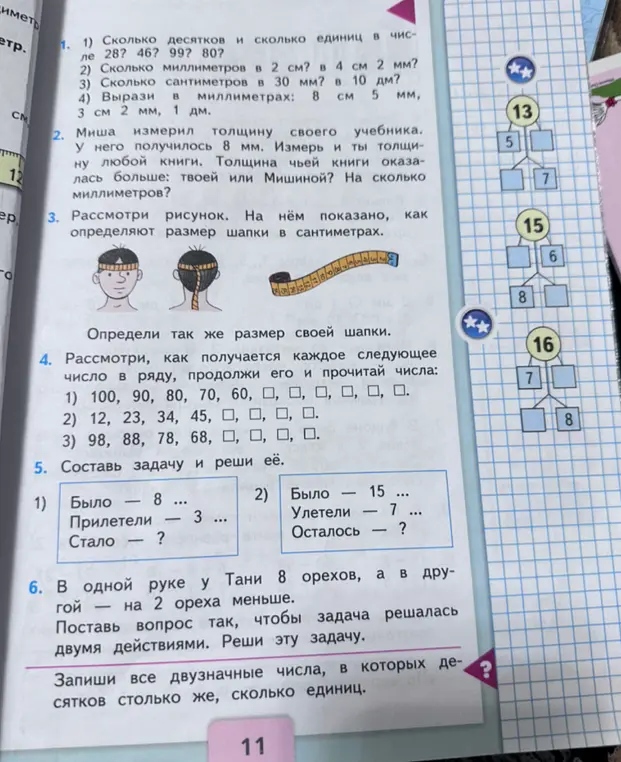 1. 1) Сколько десятков и сколько единиц в чис-
ле 28? 46? 99? 80?
2) Сколько миллиметров в 2 см? в 4 см 2 мм?
3) Сколько сантиметров в 30 мм? в 10 дм?
4) Вырази в миллиметрах: 8 см 5 мм,
3 см 2 мм, 1 дм.
2. Миша измерил толщину своего учебника.
У него получилось 8 мм. Измерь и ты толщи-
ну любой книги. Толщина чьей книги оказа-
лась больше: твоей или Мишиной? На сколько
миллиметров?
3. Рассмотри рисунок. На нём показано, как
определяют размер шапки в сантиметрах.
Определи так же размер своей шапки.
4. Рассмотри, как получается каждое следующее
число в ряду, продолжи его и прочитай числа:
1) 100, 90, 80, 70, 60, □, □, □, □, □, □.
2) 12, 23, 34, 45, □, □, □, □.
3) 98, 88, 78, 68, □, □, □, □.
5. Составь задачу и реши её.
1)
Было — 8 ...
Прилетели — 3 ...
Стало — ?
2)
Было — 15 ...
Улетели — 7 ...
Осталось — ?
6. В одной руке у Тани 8 орехов, а в дру-
гой — на 2 ореха меньше.
Поставь вопрос так, чтобы задача решалась
двумя действиями. Реши эту задачу.
Запиши все двузначные числа, в которых де-
сятков столько же, сколько единиц.
?
11
13
5 □
□ 7
15
□ 6
8 □
16
7 □
□ 8
етр.
12